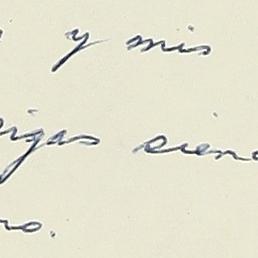 y mis
igas siend
no.